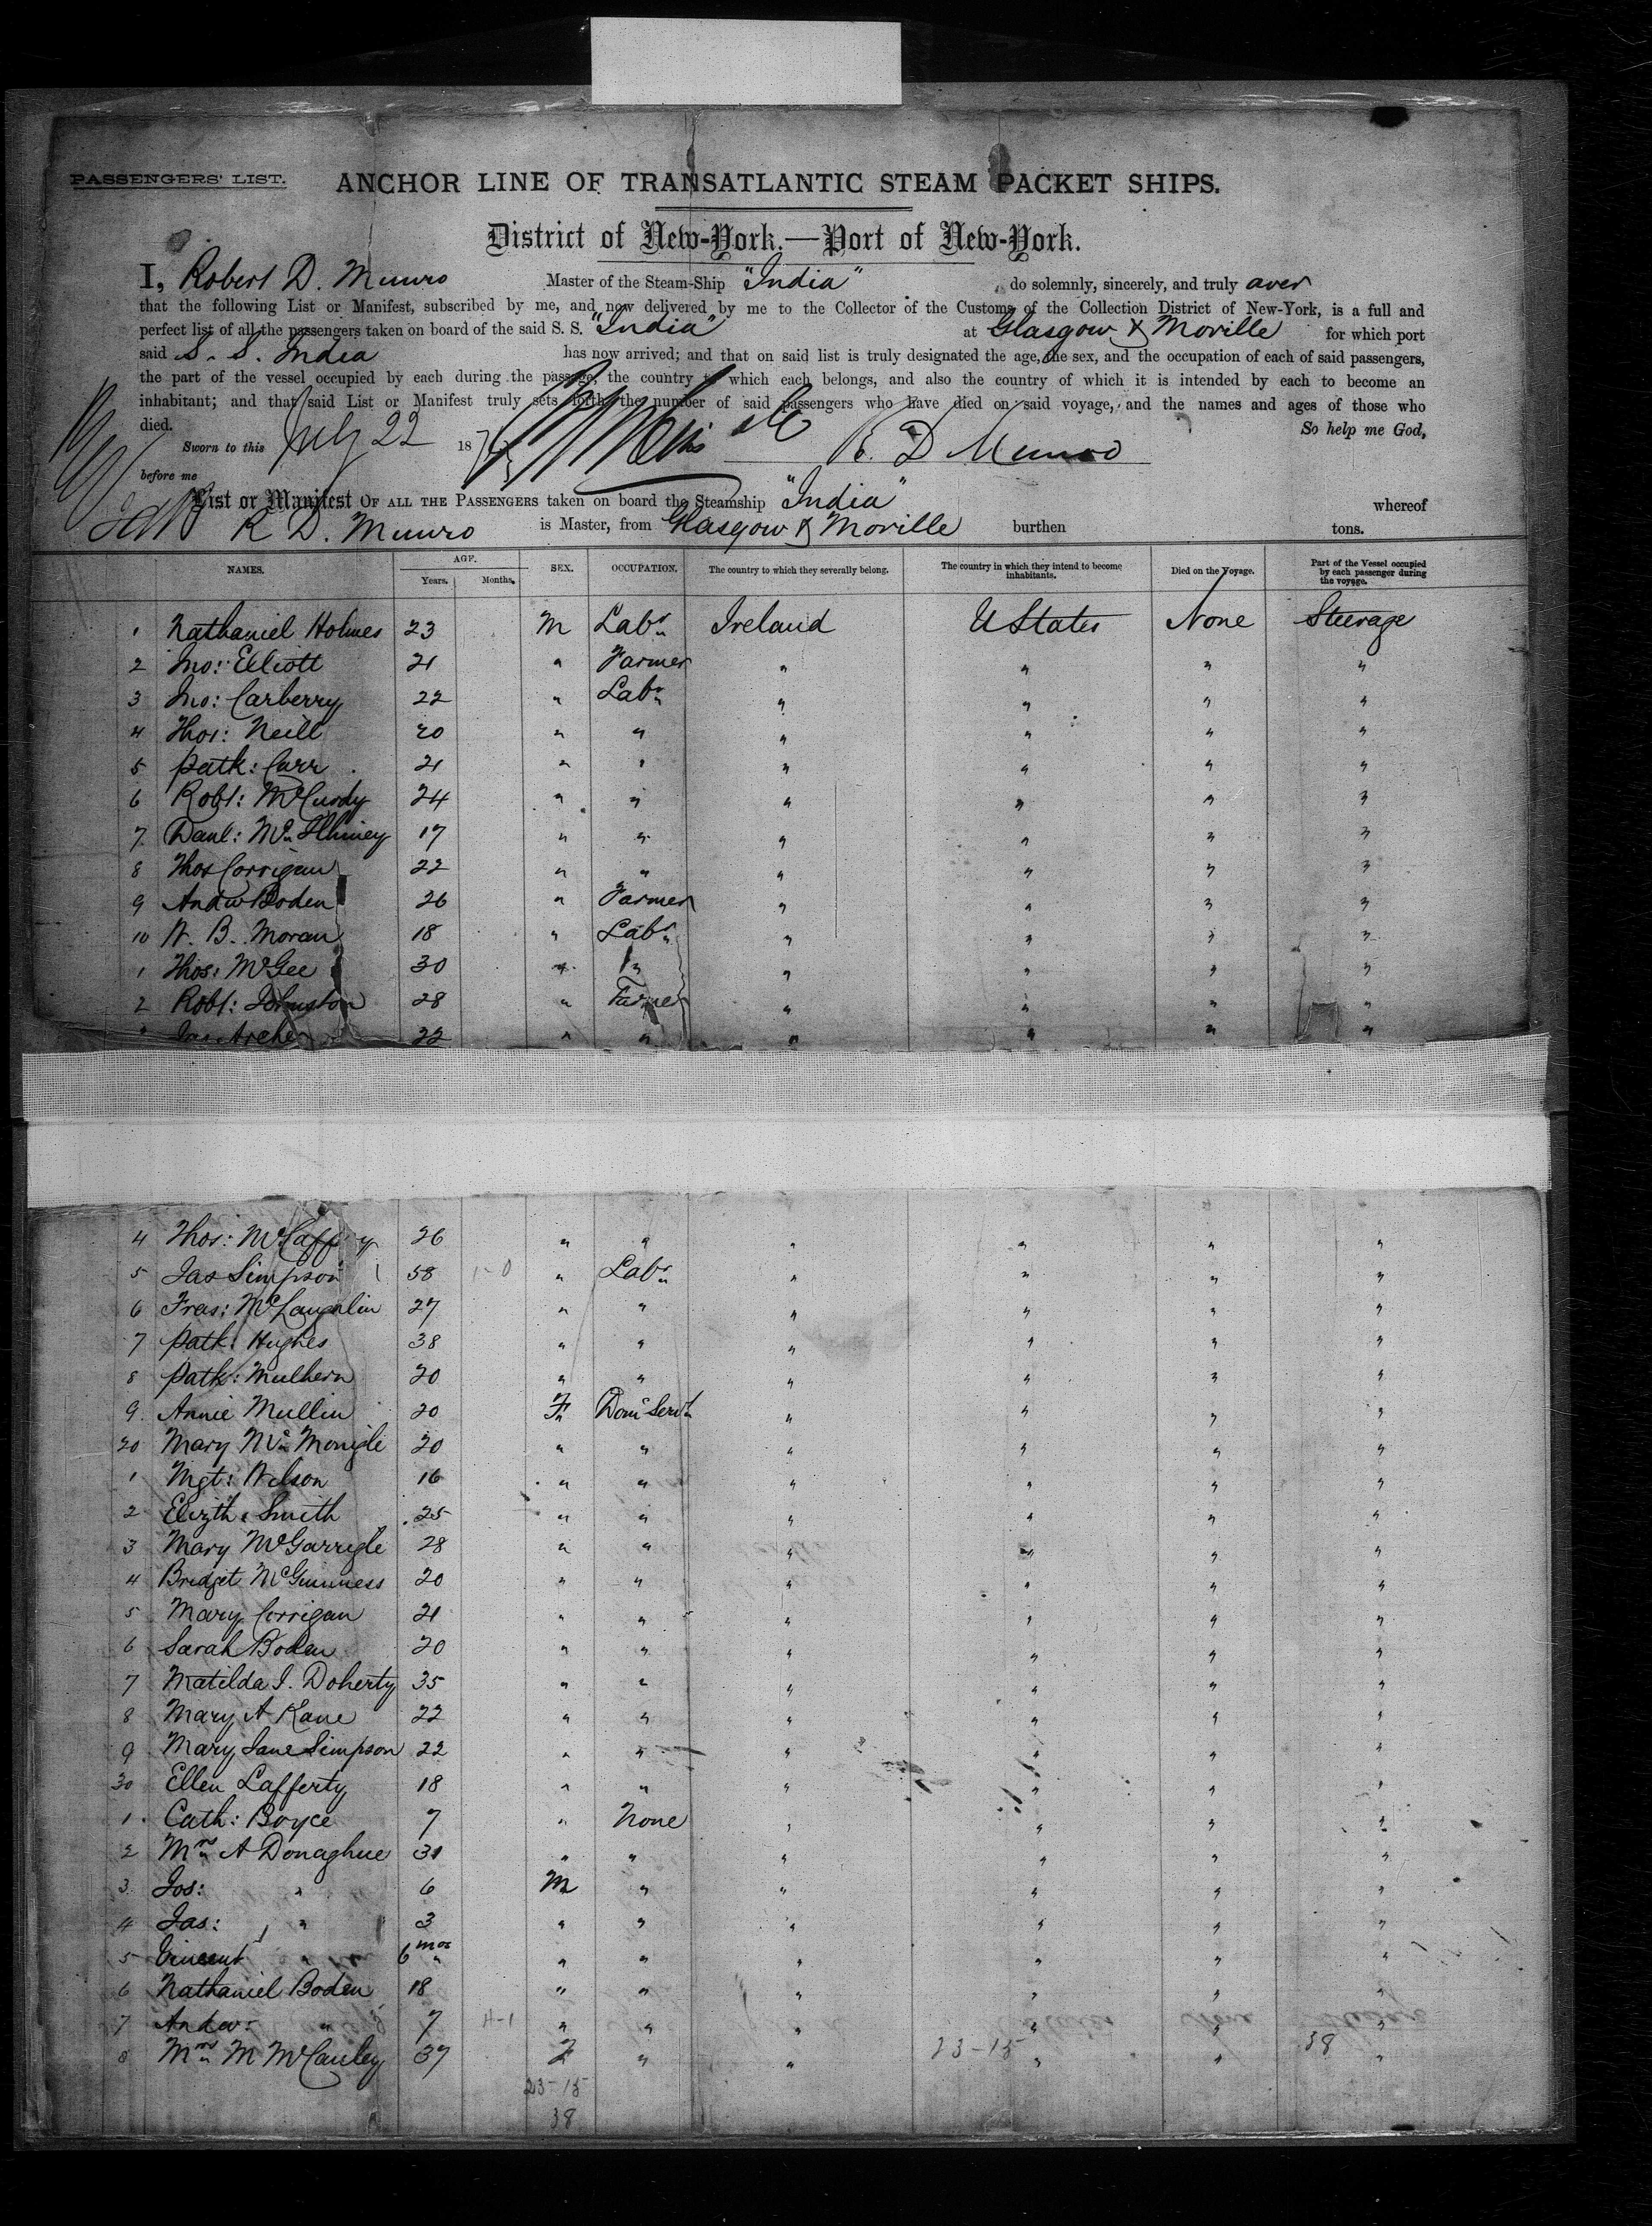 PASSENGERS' LIST.
ANCHOR LINE OF TRANSATLANTIC STEAM PACKET SHIPS.
District of New-York.—Port of New-York.
I, Robert D. Munro Master of the Steam-Ship "India" do solemnly, sincerely, and truly aver
that the following List or Manifest, subscribed by me, and now delivered by me to the Collector of the Customs of the Collection District of New-York, is a full and
perfect list of all the passengers taken on board of the said S. S. "India" at Glasgow & Moville for which port
said S. S. India has now arrived; and that on said list is truly designated the age, the sex, and the occupation of each of said passengers,
the part of the vessel occupied by each during the passage, the country to which each belongs, and also the country of which it is intended by each to become an
inhabitant; and that said List or Manifest truly sets forth the number of said passengers who have died on said voyage, and the names and ages of those who
died. So help me God,
Sworn to this July 22 187 R. D Munro
before me
List or Manifest OF ALL THE PASSENGERS taken on board the Steamship "India" whereof
R D. Munro is Master, from Glasgow & Moville burthen tons.
NAMES. AGE. Years. Months. SEX. OCCUPATION. The country to which they severally belong. The country in which they intend to become inhabitants. Died on the Voyage. Part of the Vessel occupied by each passenger during the voyage.
1 Nathaniel Holmes 23 M Labr Ireland UStates None Steerage
2 Jno: Elliott 21 " Farmer " " " "
3 Jno: Carberry 22 " Labr " " " "
4 Thos: Neill 20 " " " " " "
5 Patk: Carr 21 " " " " " "
6 Robt: McCurdy 24 " " " " " "
7 Danl: McIlhiney 17 " " " " " "
8 Thos Corrigan 22 " " " " " "
9 Andw Boden 26 " Farmer " " " "
10 W. B. Moran 18 " Labr " " " "
1 Thos: McGee 30 " " " " " "
2 Robt: Johnston 28 " Farmer " " " "
Jas Archer 22 " " " " " "
4 Thos: McCaffry 26 " " " " " "
5 Jas Simpson 58 1-0 " Labr " " " "
6 Fras: McLaughlin 27 " " " " " "
7 Patk: Hughes 38 " " " " " "
8 Patk: Mulhern 20 " " " " " "
9 Annie Mullin 20 F Dom Servt " " " "
20 Mary McMonigle 20 " " " " " "
1 Mgt: Wilson 16 " " " " " "
2 Elizth: Smith 25 " " " " " "
3 Mary McGarrigle 28 " " " " " "
4 Bridget McGuinness 20 " " " " " "
5 Mary Corrigan 21 " " " " " "
6 Sarah Boden 20 " " " " " "
7 Matilda J. Doherty 35 " " " " " "
8 Mary A Kane 22 " " " " " "
9 Mary Jane Simpson 22 " " " " " "
30 Ellen Lafferty 18 " " " " " "
1 Cath: Boyce 7 " None " " " "
2 Mrs A Donaghue 31 " " " " " "
3 Jos: " 6 M " " " " "
4 Jas: " 3 " " " " " "
5 Vincent " 6 mos " " " " " "
6 Nathaniel Boden 18 " " " " " "
7 Andw: " 7 4-1 " " " " " "
8 Mrs M McCauley 37 F " " 23-15 " " 38 "
23-15
38